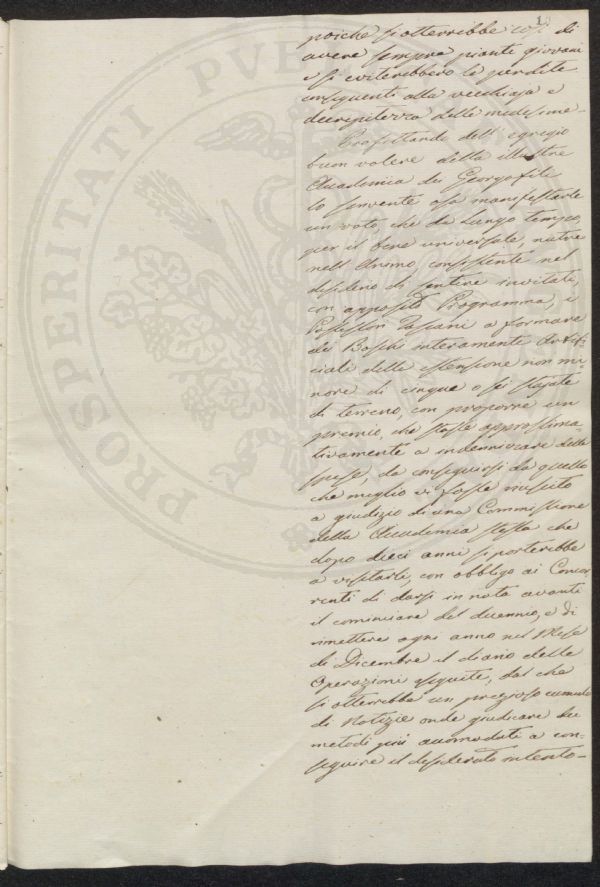 poichè si otterrebbe così di
avere sempre piante giovani
e si eviterebbero le perdite
conseguenti alla vecchiaja e
decrepitezza delle medesime-
Profittando dell'egregio
buon volere della illustre
Accademia dei Georgofili
lo scrivente osa manifestarle
un voto, che da lungo tempo,
per il bene universale, nutre
nell'Animo, consistente nel
desiderio di sentire invitati,
con apposito Programma, i
Possessori Toscani a formare
dei Boschi interamente Artifi-
ciali della estensione non mi-
nore di cinque o sei stajate
di terreno, con proporre un
premio, che stasse approssima
tivamente a indennizzare delle
spese, da conseguirsi da quello
che meglio vi fosse riuscito
a giudizio di una Commissione
della Accademia stessa che
dopo dieci anni si porterebbe
a visitarli, con obbligo ai Concor-
renti di darsi in nota avanti
il cominciare del decennio, e di
rimettere ogni anno nel Mese
di Dicembre il diario delle
Operazioni eseguite, dal che
si otterrebbe un prezioso cumulo
di Notizie onde giudicare dei
metodi più accomodati a con-
seguire il desiderato intento-
PROSPERITATI PVB